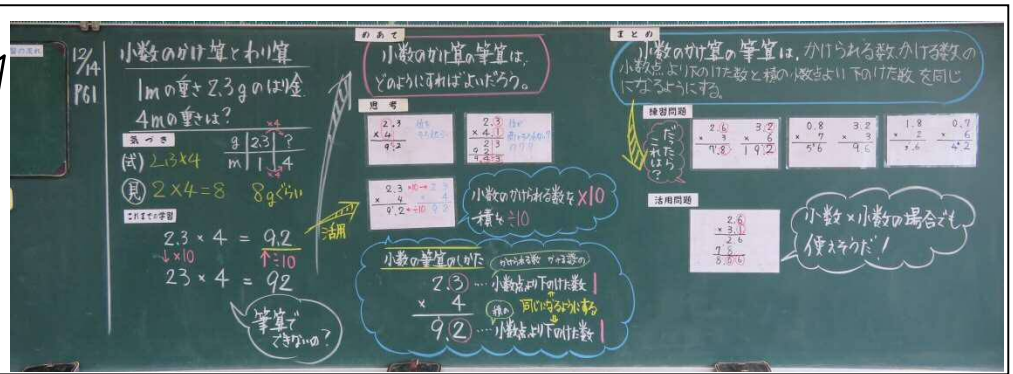 12/14
P61
小数のかけ算とわり算
1mの重さ2.3gのはり金
4mの重さは?
気づき
×4
g 2.3 ?
m 1 4
×4
(式) 2.3×4
見 2×4=8 8gぐらい
これまでの学習
2.3 × 4 = 9.2
↓×10 ↑÷10
23 × 4 = 92
筆算で
できないの?
活用
めあて
小数のかけ算の筆算は、
どのようにすればよいだろう。
思考
2.3
× 4
9.2
2.3
× 4.1
2 3
9 2
9.4 3
2.3 ×10→ 2 3
× 4 × 4
9.2 ←÷10 9 2
小数のかけられる数を×10
積を÷10
小数の筆算のしかた
かけられる数 かける数の
2.3 … 小数点より下のけた数 1
× 4 同じになるようにする
積の
9.2 … 小数点より下のけた数 1
まとめ
小数のかけ算の筆算は、かけられる数、かける数の
小数点より下のけた数と積の小数点より下のけた数を同じ
になるようにする。
練習問題
だったら
これは?
2.6
× 3
7.8
3.2
× 6
1 9.2
0.8
× 7
5.6
3.2
× 3
9.6
1.8
× 2
3.6
0.7
× 6
4.2
活用問題
2.6
× 3.1
2 6
7 8
8.0 6
小数×小数の場合でも
使えそうだ!